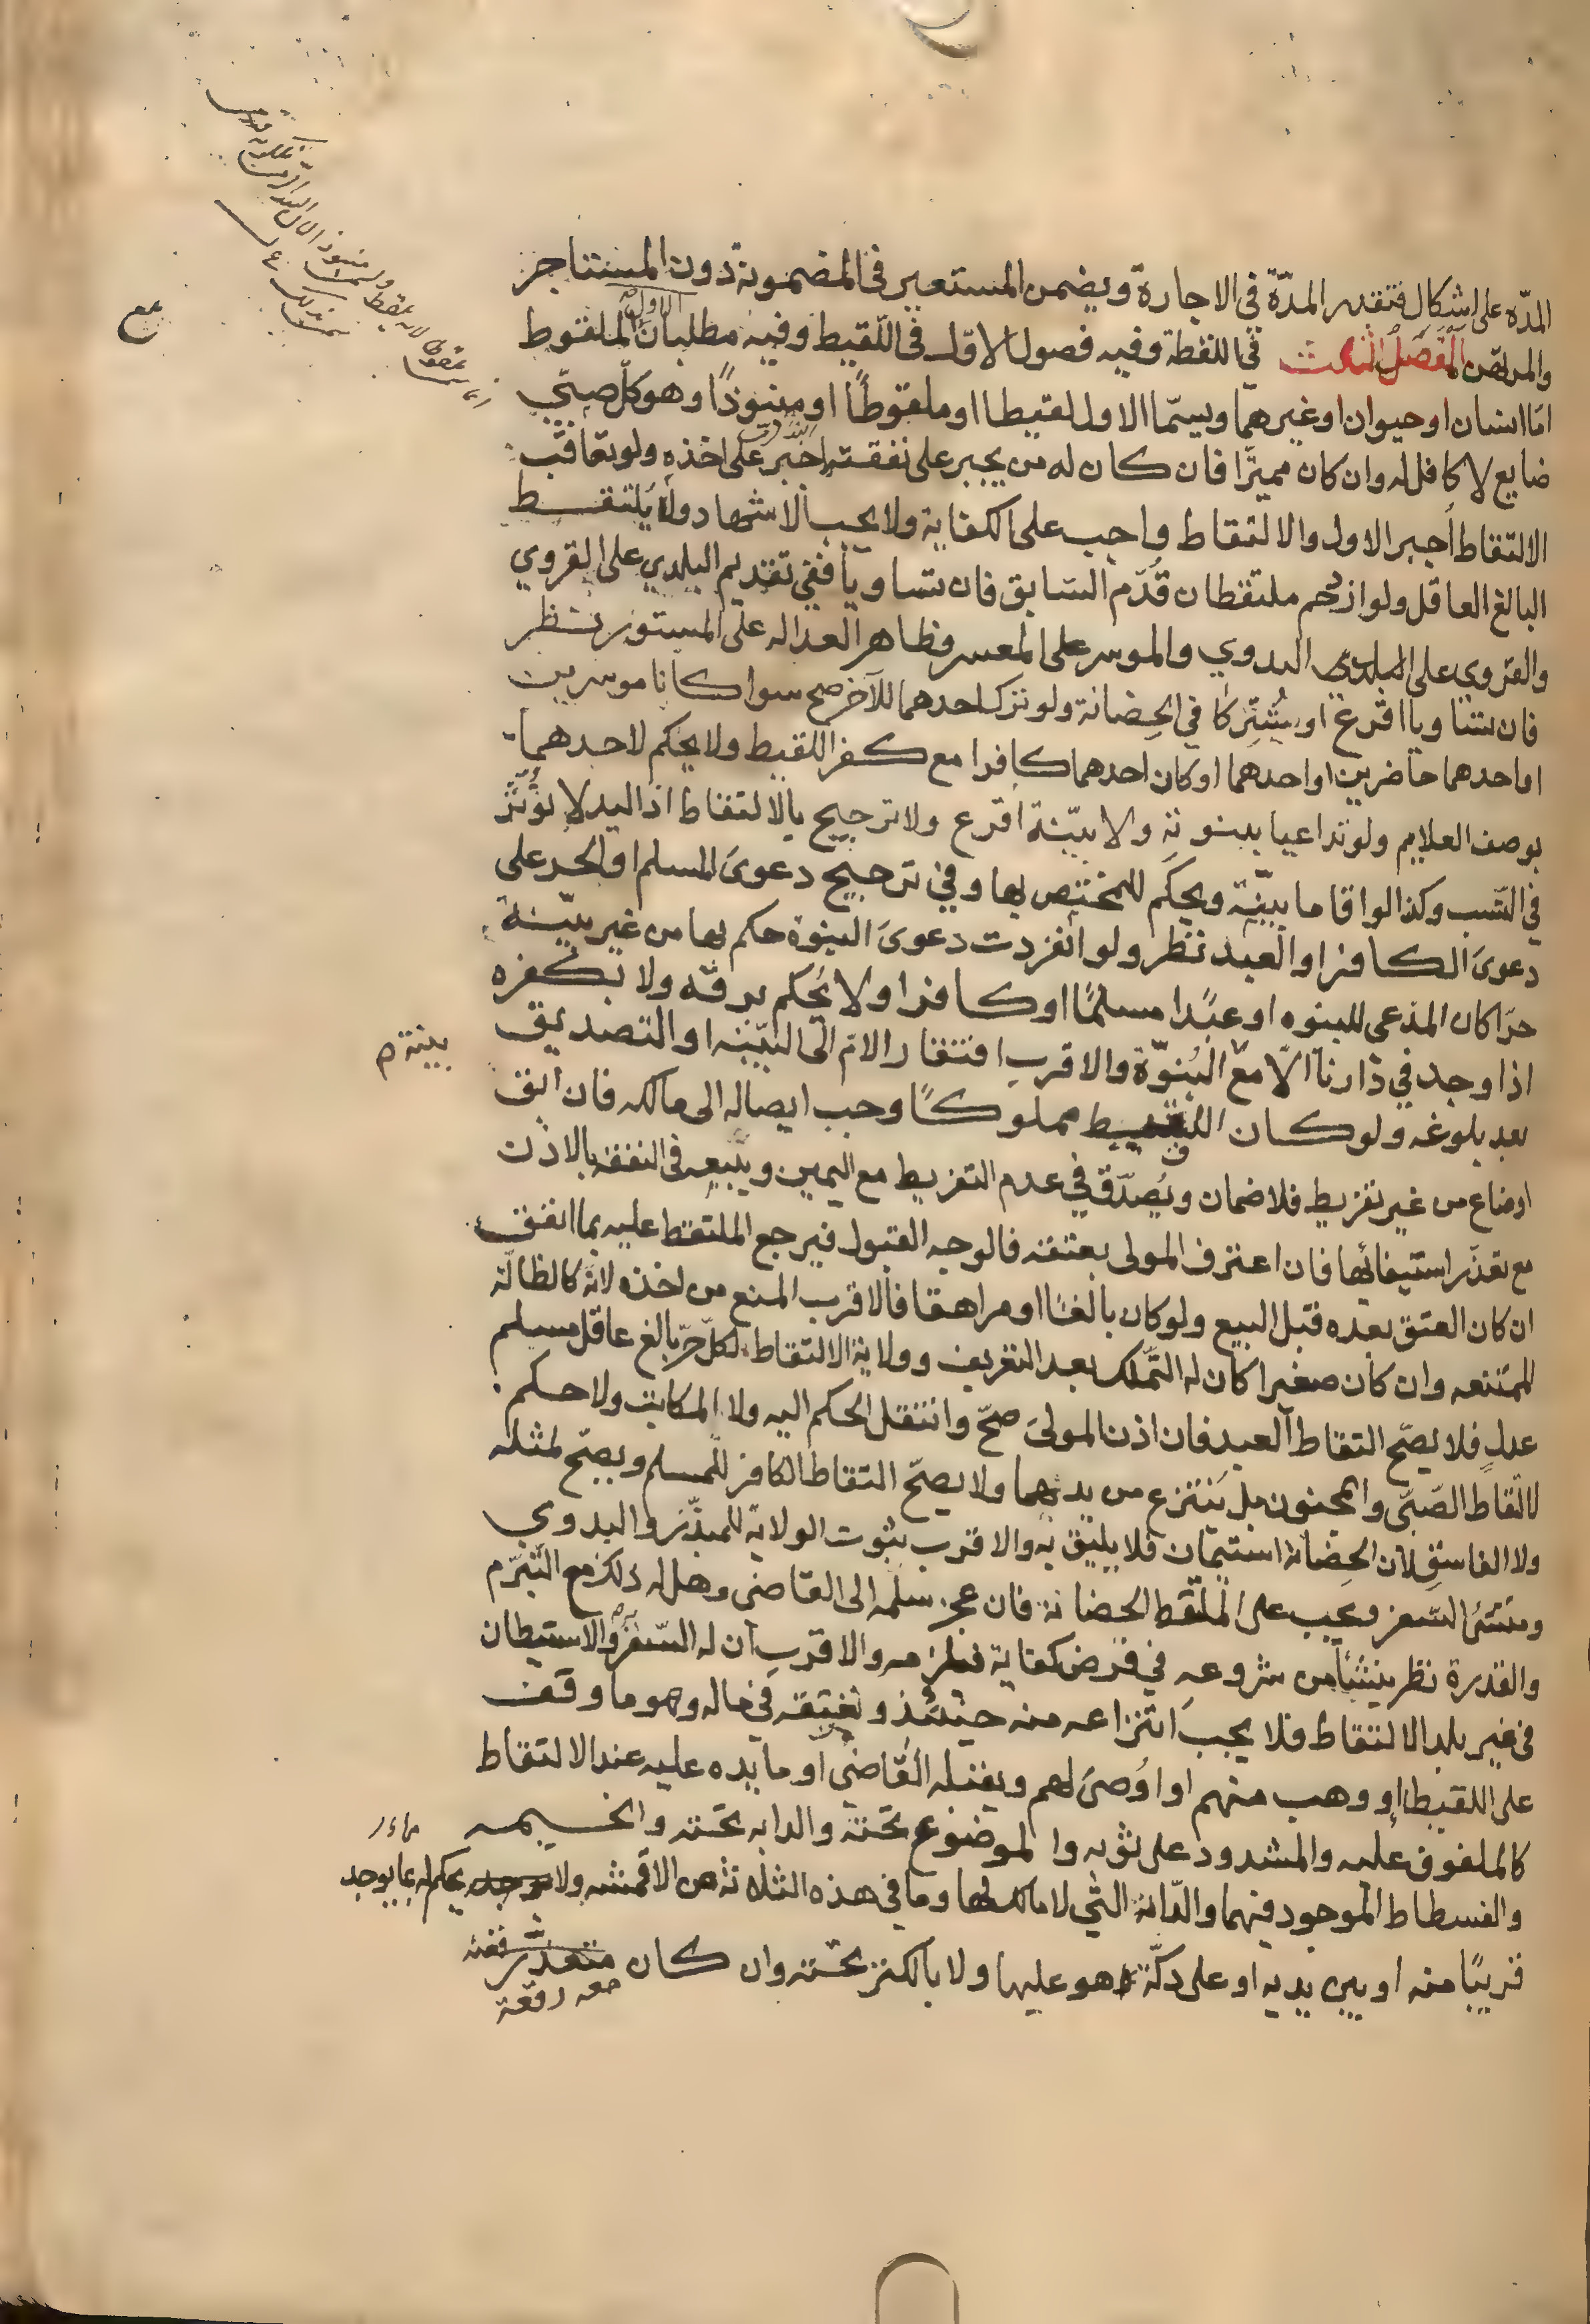 المدّه على اشكال فتقدير المدّة في الاجارة ويضمن المستعير في المضمونة دون المستاجر
والمرتهن المقصد الثالث في اللقطة وفيه فصول الاوّل في اللّقيط وفيه مطلبان الاول الملقوط
امّا انسان او حيوان او غيرهما ويسمّا الاول لقيطا او ملقوطًا او منبوذًا وهو كلّ صبيّ
ضايع لا كافل له وان كان مميزًا فان كان له من يجبر على نفقته اجبر على اخذه ولو تعاقب
الالتقاط اجبر الاول والالتقاط واجب على الكفاية ولا يجب الاشهاد وله يلتقط
البالغ العاقل ولو ازدحم ملتقطان قُدّم السّابق فان تساويا ففي تقديم البلدي على القروي
والقروي على البدوي والموسر على المعسر وظاهر العداله على المستور نظر
فان تساويا اقرع او يشتركا في الحضانة ولو ترك احدهما للآخر صح سوا كانا موسرين
او احدهما حاضرين او احدهما او كان احدهما كافرا مع كفر اللقيط ولا يحكم لاحدهما
بوصف العلايم ولو تداعيا ببنوته ولا بيّنة اقرع ولا ترجيح بالالتقاط اذ اليد لا تؤثّر
في النّسب وكذا لو اقاما بيّنة ويحكم للمختص بها وفي ترجيح دعوى المسلم او الحر على
دعوى الكافر او العبد نظر ولو انفردت دعوى البنوة حكم بها من غير بيّنة
حرّا كان المدّعي للبنوه او عبدًا مسلمًا او كافرا ولا يُحكم برقّه ولا بكفره
اذا وجد في دارنا الّا مع البُنوّة والاقرب افتقار الامّ الى البيّنه او التصديق
بينة م
بعد بلوغه ولو كان اللقيط مملوكًا وجب ايصاله الى مالكه فان ابق
او ضاع من غير تفريط فلا ضمان ويُصدّق في عدم التفريط مع اليمين ويبيعه في النفقه بالاذن
مع تعذّر استيفائها فان اعترف المولى بعتقه فالوجه القبول فيرجع الملتقط عليه بما انفق
ان كان العتق بعده قبل البيع ولو كان بالغًا او مراهقا فالاقرب المنع من اخذه لانّه كالظالّة
الممتنعه وان كان صغيرا كان له التّملك بعد التعريف وولاية الالتقاط لكلّ حرّ بالغ عاقل مسلم
عدلٍ فلا يصّح التقاط العبد فان اذن المولى صحّ وانتقل الحكم اليه ولا المكاتب ولا حكم
لالتقاط الصّبيّ والمجنون بل يُنتزع من يدهما ولا يصحّ التقاط الكافر للمسلم ويصحّ لمثله
ولا الفاسق لان الحِضانة استيمان فلا يليق به والاقرب ثبوت الولاية للمبذّر والبدوي
ومنشئ السّفر ويجب على الملتقط الحضانة فان عجز سلّمه الى القاضي وهل له ذلك مع التّبرّم
والقدرة نظر ينشأ من شروعه في فرض كفاية فلزمه والاقرب ان له السّفر به والاستيطان
في غير بلد الالتقاط فلا يجب انتزاعه منه حينئذ ونفقته في ماله وهو ما وقف
على اللقيط او وهب منهم او اُوصى لهم ويقبله القاضي او ما يده عليه عند الالتقاط
كالملفوف عليه والمشدود على ثوبه والموضوع تحته والدابه تحته والخيمه
والفسطاط الموجود فيهما والدّار الّتي لا مالك لها وما في هذه الثلاثة من الاقمشه ولا يحكم له بما يوجد
قريبًا منه او بين يديه او على دكّة هو عليها ولا بالكنز تحته وان كان
معه رقعة